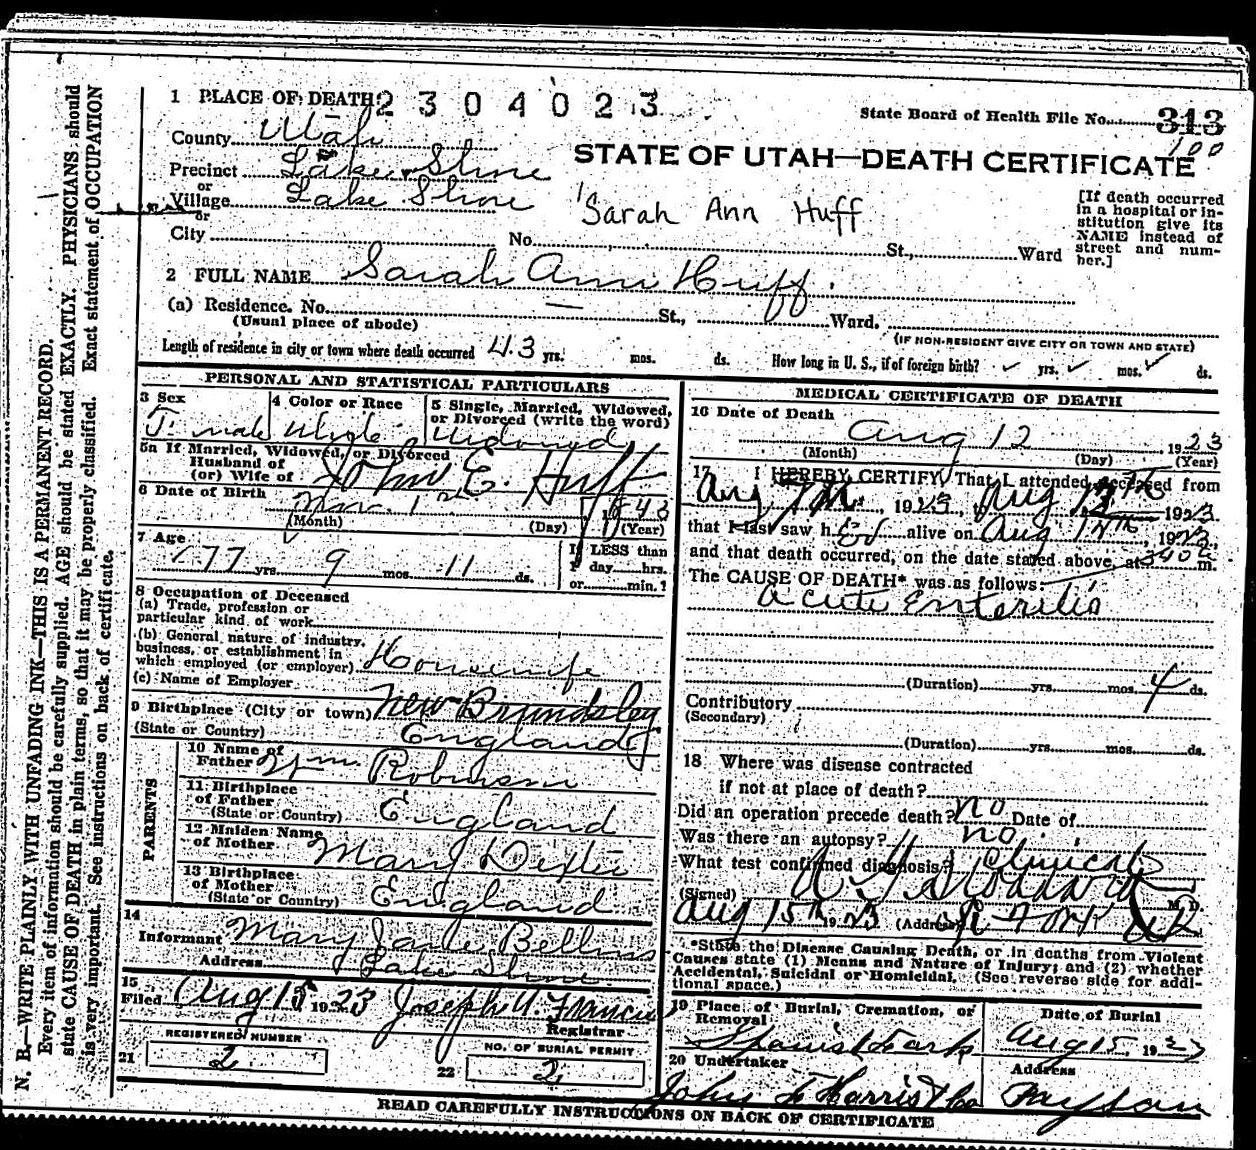 1 PLACE OF DEATH 2304023
State Board of Health File No. 313
100
County Utah
STATE OF UTAH—DEATH CERTIFICATE
Precinct Lake Shore
or
Village Lake Shore
or
City No. St., Ward
Sarah Ann Huff
[If death occurred in a hospital or institution give its NAME instead of street and number.]
2 FULL NAME Sarah Ann Huff
(a) Residence. No. — St., Ward.
(Usual place of abode)
(IF NON-RESIDENT GIVE CITY OR TOWN AND STATE)
Length of residence in city or town where death occurred 43 yrs. mos. ds. How long in U. S., if of foreign birth? yrs. mos. ds.
PERSONAL AND STATISTICAL PARTICULARS
3 Sex
4 Color or Race
5 Single, Married, Widowed, or Divorced (write the word)
White Widowed
5a If Married, Widowed, or Divorced
Husband of
(or) Wife of John E. Huff
6 Date of Birth
(Month) (Day) (Year)
7 Age 77 yrs. 9 mos. 11 ds.
If LESS than
1 day hrs.
or min.?
8 Occupation of Deceased
(a) Trade, profession or
particular kind of work
(b) General nature of industry,
business, or establishment in
which employed (or employer) Housewife
(c) Name of Employer
9 Birthplace (City or town) New
(State or Country) England
PARENTS
10 Name of
Father Wm. Robinson
11 Birthplace
of Father
(State or Country) England
12 Maiden Name
of Mother Mary
13 Birthplace
of Mother
(State or Country) England
14
Informant Mary Jane
Address Lake Shore
15
Filed Aug 15 1923 Joseph Francis
Registrar
REGISTERED NUMBER
21 2
NO. OF BURIAL PERMIT
22 2
MEDICAL CERTIFICATE OF DEATH
16 Date of Death
Aug 12 1923
(Month) (Day) (Year)
17 I HEREBY CERTIFY, That I attended deceased from
Aug 1923, Aug 1923
that I last saw h alive on Aug 1923,
and that death occurred, on the date stated above, at m.
The CAUSE OF DEATH* was as follows:
Acute Enteritis
(Duration) yrs. mos. 4 ds.
Contributory
(Secondary)
(Duration) yrs. mos. ds.
18 Where was disease contracted
if not at place of death?
Did an operation precede death? no Date of
Was there an autopsy? no.
What test confirmed diagnosis? Clinical
(Signed) M. D.
Aug 15th 1923 (Address)
*State the Disease Causing Death, or in deaths from Violent
Causes state (1) Means and Nature of Injury; and (2) whether
Accidental, Suicidal or Homicidal. (See reverse side for addi-
tional space.)
19 Place of Burial, Cremation, or
Removal
Date of Burial
Aug 15, 1923
20 Undertaker
Address
John Harris Payson
READ CAREFULLY INSTRUCTIONS ON BACK OF CERTIFICATE
N. B.—WRITE PLAINLY WITH UNFADING INK—THIS IS A PERMANENT RECORD.
Every item of information should be carefully supplied. AGE should be stated EXACTLY. PHYSICIANS should
state CAUSE OF DEATH in plain terms, so that it may be properly classified. Exact statement of OCCUPATION
is very important. See instructions on back of certificate.